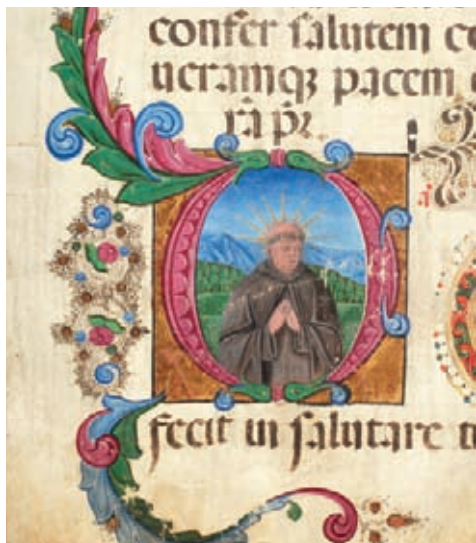 confer salutem
ueramqz pacem
rã pr̃.
fecit in salutare